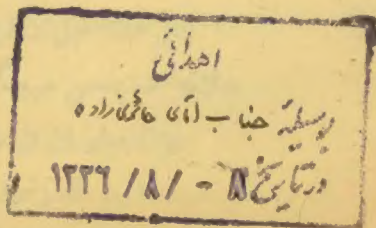 اهدائی
بوسیلهٔ جناب آقای حائری‌زاده
در تاریخ ۸ - /۸/ ۱۳۳۶